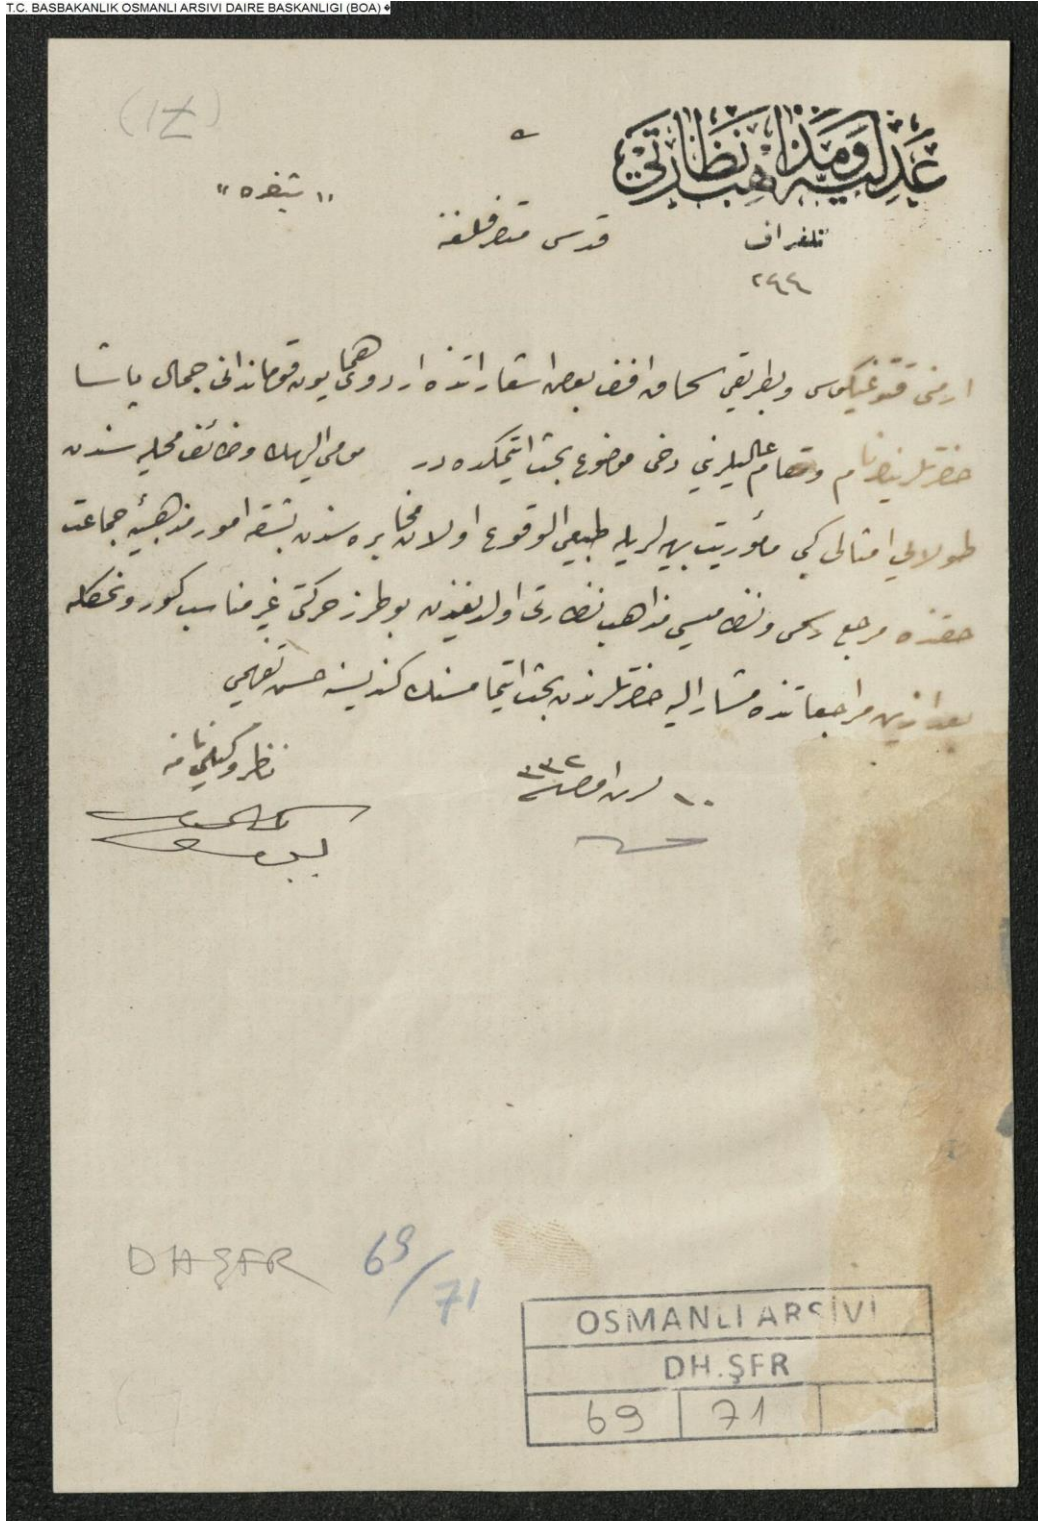 T.C. BASBAKANLIK OSMANLI ARSIVI DAIRE BASKANLIGI (BOA) �
عدليه ومذاهب نظارتى
تلغراف
٢٤٤
"شيفره"
قدس متصرفلغنه
ارمنى قتوغيكوسى وبطريقى سحاق افندى بعض اشعاراتنده اردوى همايون قومانداني جمال پاشا
حضرتلرينك نام ومقام عاليلريني دخى موضوع بحث ايتمكده در موما اليهك وظائف محليه سندن
طولايى امثالى كبى مأمورين ايله طبيعى الوقوع اولان مخابره سندن بشقه امور مذهبيۀ جماعت
حقنده مرجع رسمى ونظاميسى مذاهب نظارتى اولديغندن بو طرز حركتى غير مناسب كورونمكله
بعد ازين مراجعاتنده مشار اليه حضرتلرندن بحث ايتمامسنك كنديسنه حسن تفهيمى
ناظر وكيلى نامنه
٣٣٢
DH ŞFR 69/71
OSMANLI ARŞİVİ
DH.ŞFR
69 71